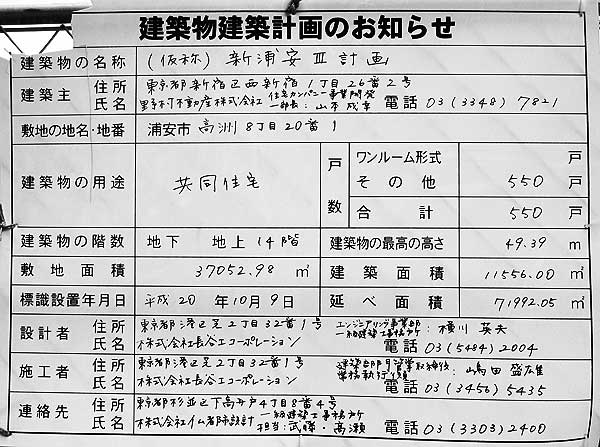 建築物建築計画のお知らせ
建築物の名称 (仮称) 新浦安Ⅲ計画
建築主 住所 東京都新宿区西新宿1丁目26番2号
氏名 野村不動産株式会社 住宅カンパニー事業開発一部長:山本成幸 電話 03(3348)7821
敷地の地名・地番 浦安市 高洲8丁目20番1
建築物の用途 共同住宅
戸数 ワンルーム形式 戸
その他 550 戸
合計 550 戸
建築物の階数 地下 地上14階 建築物の最高の高さ 49.39 m
敷地面積 37052.98 ㎡ 建築面積 11556.00 ㎡
標識設置年月日 平成20年10月9日 延べ面積 71992.05 ㎡
設計者 住所 東京都港区芝2丁目32番1号 エンジニアリング事業部
氏名 株式会社長谷工コーポレーション 一級建築士事務所:横川 英夫
電話 03(5484)2004
施工者 住所 東京都港区芝2丁目32番1号
氏名 株式会社長谷工コーポレーション 嶋田 盛雄
電話 03(3456)5435
連絡先 住所 東京都杉並区下高井戸4丁目8番4号
氏名 株式会社イム都市設計 一級建築士事務所
担当:武藤・高瀬 電話 03(3303)2400